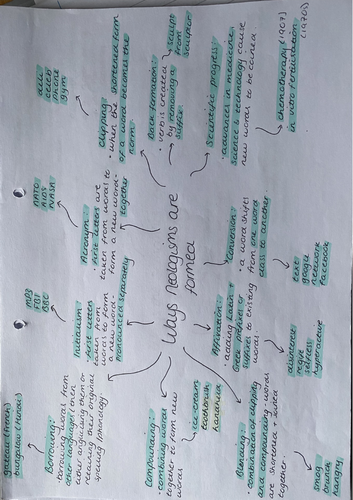 Ways neologisms are
formed
Borrowing:
borrowing words from
other languages then
either anglicising them or
retaining their original
spelling phonology
gateau (French)
bungalow (Hindi)
Initialism:
• first letters
taken from
words to form
a new word-
pronounced separately
MP3
FBI
BBC
Acronym:
• first letters are
taken from words to
form a new word-
together
NATO
AIDS
NASA
Clipping
• when the shortened form
of a word becomes the
norm
cell
celeb
phone
gym
Back formation:
• verb is created
by removing a
suffix
sculpt
from
sculptor
Scientific progress:
• advances in medicine,
science & technology cause
new words to be coined
chemotherapy (1907)
in vitro fertilisation
(1970s)
Conversion:
• a word shifts
from one word
class to another.
text
google
network
Facebook
Affixation:
• adding Latin &
Greek prefixes or
suffixes to existing
words.
selfless
hyperactive
Compounding:
combining words
together to form new
words
ice-cream
toothbrush
handheld
Blending:
• combination of clipping
and compounding - words
are shortened &
together.
smog
brunch
hangry